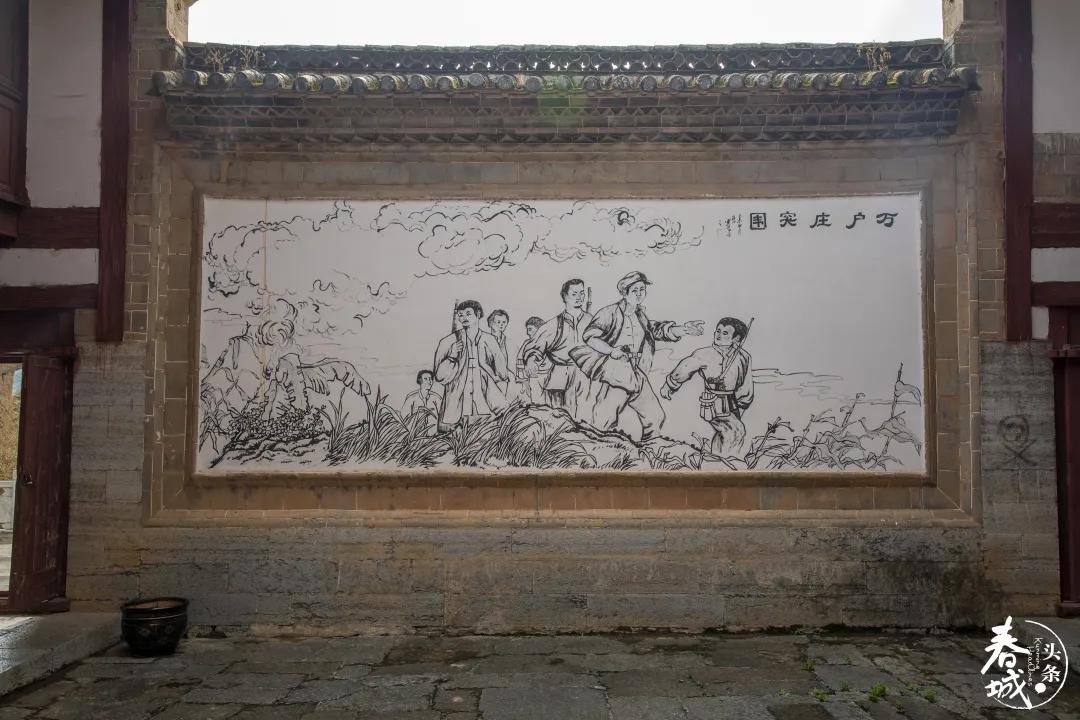 万户庄突围
春城
头条